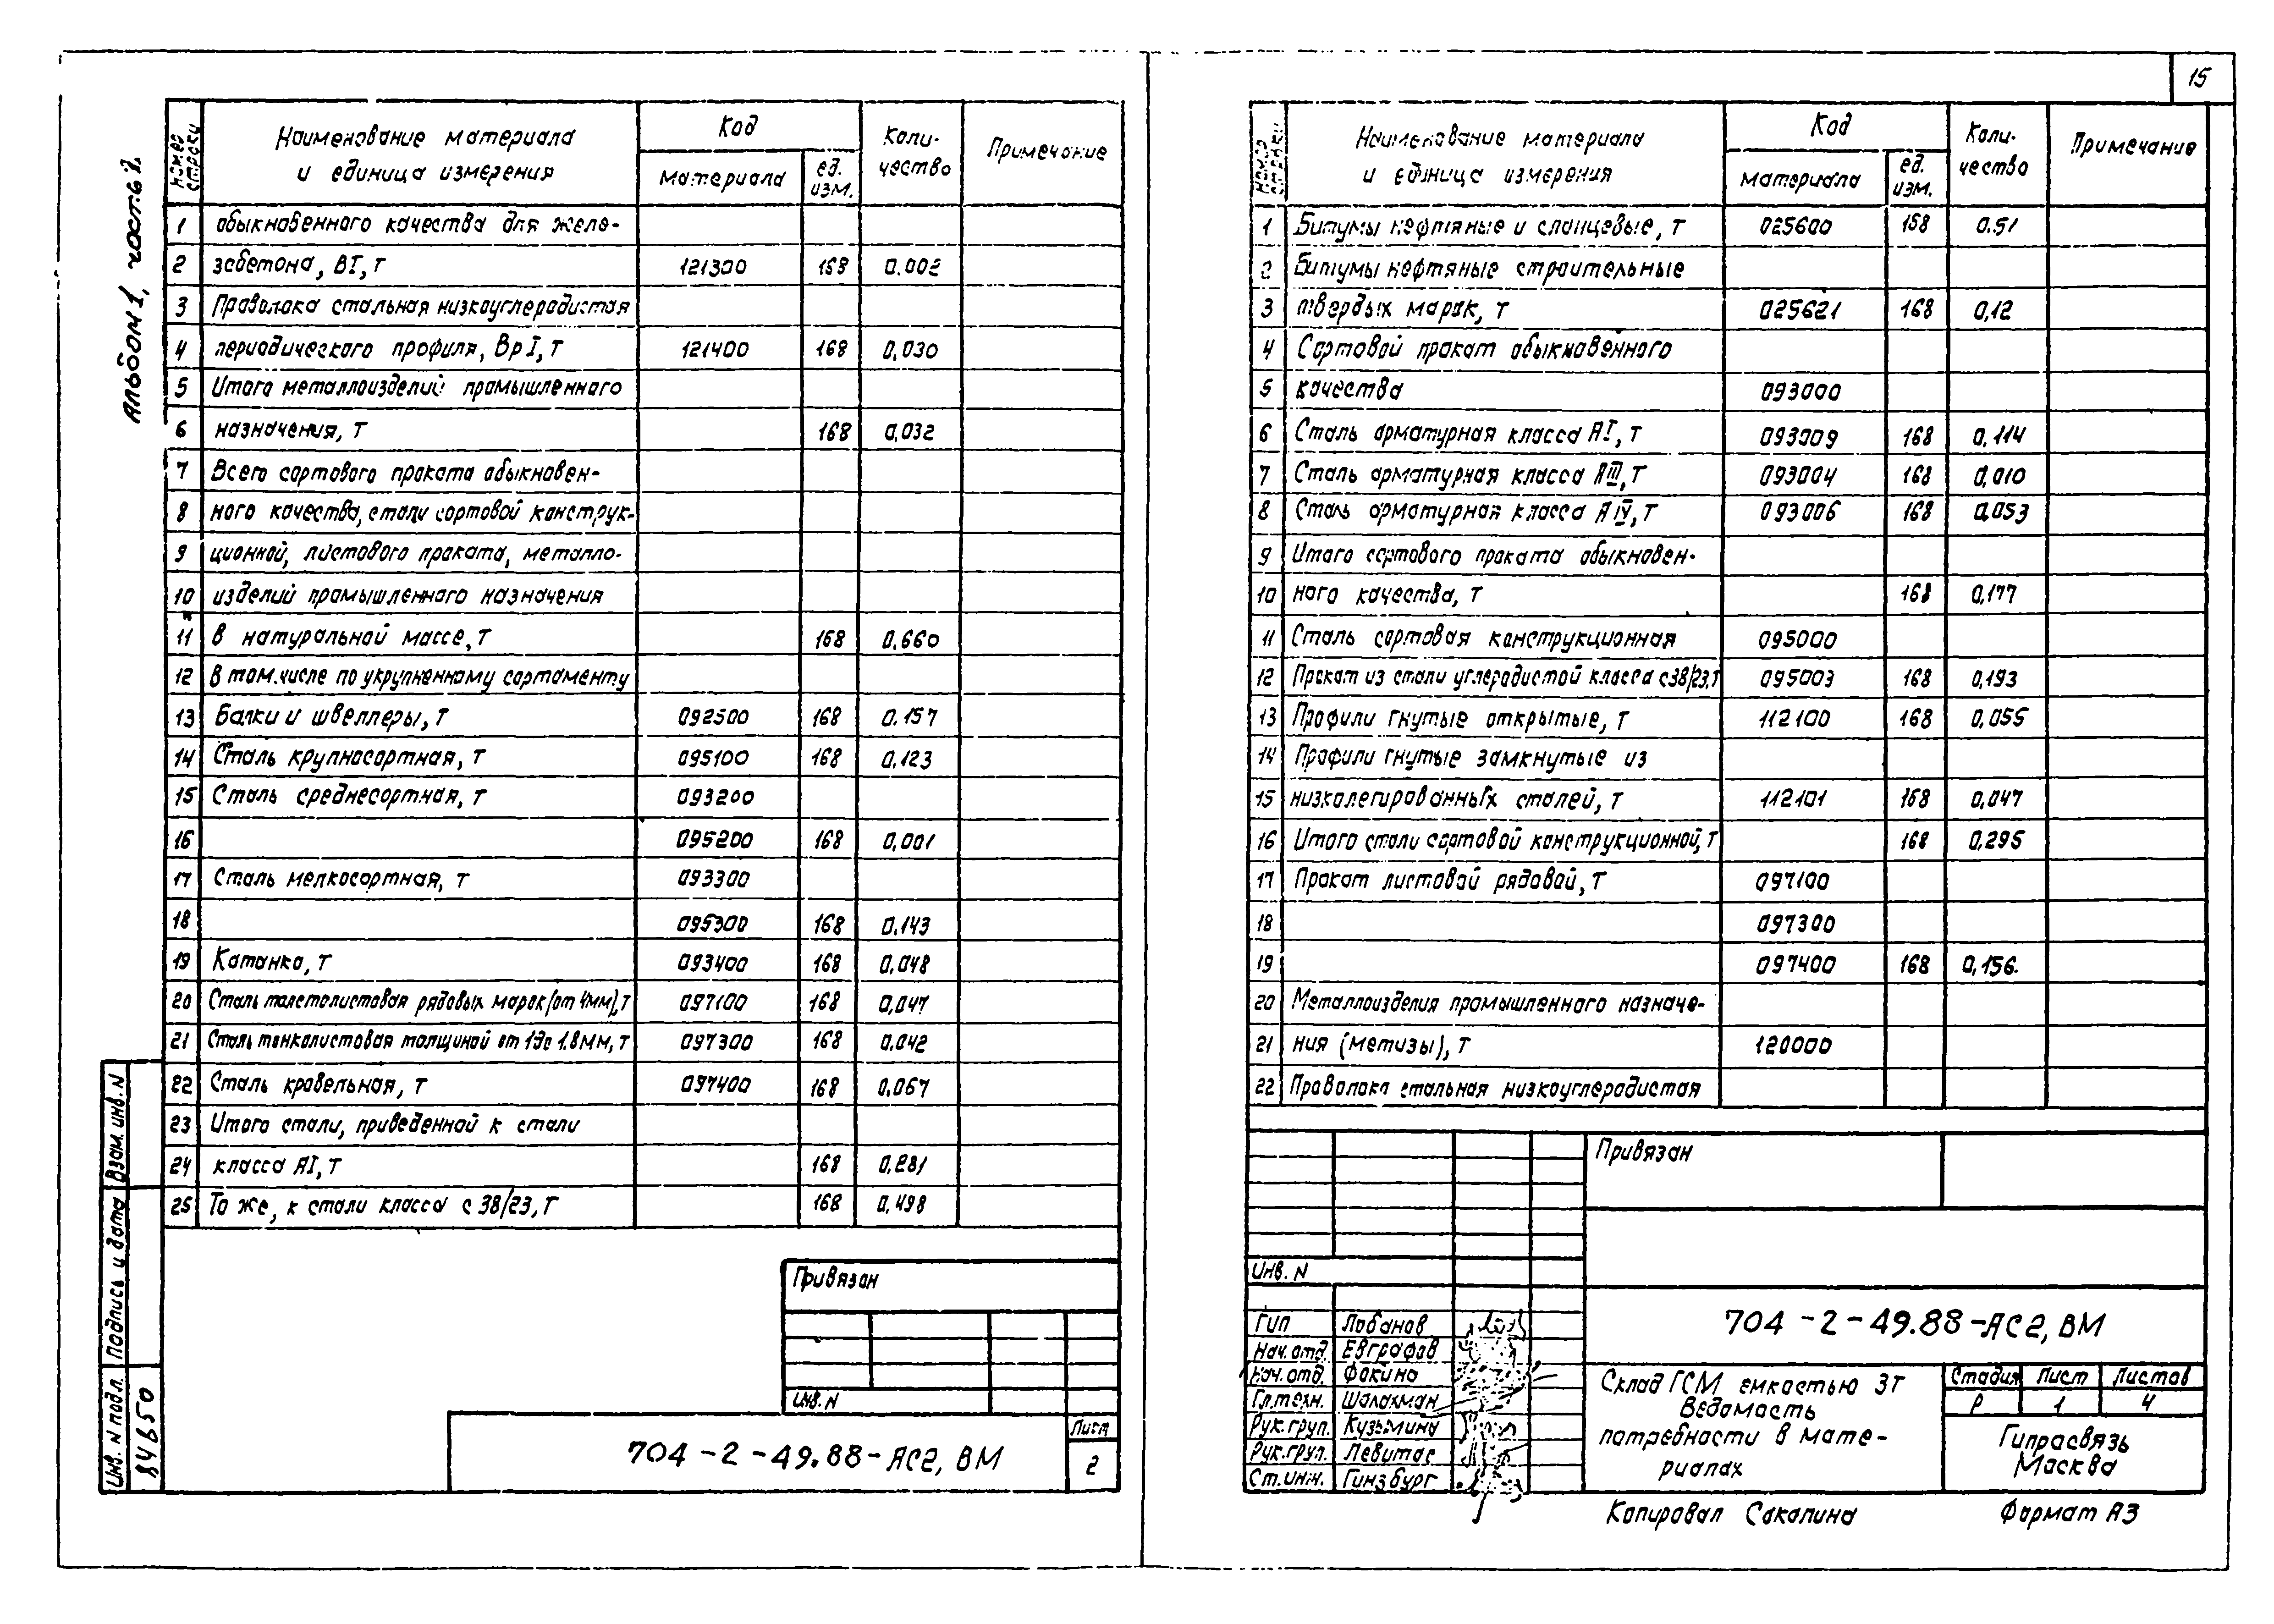 15
Альбом 1, часть 2
Номер строки
Наименование материала и единица измерения
Код
материала
ед. изм.
Коли-чество
Примечание
1 обыкновенного качества для желе-
2 зобетона, ВI, т 121300 168 0.002
3 Проволока стальная низкоуглеродистая
4 периодического профиля, Вр I, т 121400 168 0,030
5 Итого металлоизделий промышленного
6 назначения, т 168 0,032
7 Всего сортового проката обыкновен-
8 ного качества, стали сортовой конструк-
9 ционной, листового проката, металло-
10 изделий промышленного назначения
11 в натуральной массе, т 168 0.660
12 В том.числе по укрупненному сортаменту
13 Балки и швеллеры, т 092500 168 0.157
14 Сталь крупносортная, т 095100 168 0,123
15 Сталь среднесортная, т 093200
16 095200 168 0,001
17 Сталь мелкосортная, т 093300
18 095300 168 0.143
19 Катанка, т 093400 168 0,048
20 Сталь толстолистовая рядовых марок (от 4мм), т 097100 168 0,047
21 Сталь тонколистовая толщиной от 1до 1.8мм, т 097300 168 0.042
22 Сталь кровельная, т 097400 168 0.067
23 Итого стали, приведенной к стали
24 класса АI, т 168 0,281
25 То же, к стали класса с 38/23, т 168 0,498
Привязан
Инв. N
704-2-49.88-АС2, ВМ
Лист
2
Взам. инв. N
Подпись и дата
Инв. N подл.
Наименование материала и единица измерения
Код
материала
ед. изм.
Коли-чество
Примечание
1 Битумы нефтяные и сланцевые, т 025600 158 0.51
2 Битумы нефтяные строительные
3 твердых марок, т 025621 168 0,12
4 Сортовой прокат обыкновенного
5 качества 093000
6 Сталь арматурная класса АI, т 093009 168 0,114
7 Сталь арматурная класса АIII, т 093004 168 0,010
8 Сталь арматурная класса АIV, т 093006 168 0,053
9 Итого сортового проката обыкновен-
10 ного качества, т 168 0,177
11 Сталь сортовая конструкционная 095000
12 Прокат из стали углеродистой класса с38/23, т 095003 168 0,193
13 Профили гнутые открытые, т 112100 168 0,055
14 Профили гнутые замкнутые из
15 низколегированных сталей, т 112101 168 0,047
16 Итого стали сортовой конструкционной, т 168 0,295
17 Прокат листовой рядовой, т 097100
18 097300
19 097400 168 0,156.
20 Металлоизделия промышленного назначе-
21 ния (метизы), т 120000
22 Проволока стальная низкоуглеродистая
Привязан
Инв. N
Гип Лобанов
Нач. отд. Евграфов
Нач. отд. Фокина
Гл.техн. Шалахман
Рук.груп. Кузьмина
Рук.груп. Левитас
Ст.инж. Гинзбург
704-2-49.88-АС2, ВМ
Склад ГСМ емкостью 3т
Ведомость
потребности в мате-
риалах
Стадия Лист Листов
Р 1 4
Гипросвязь
Москва
Копировал Соколина
Формат А3